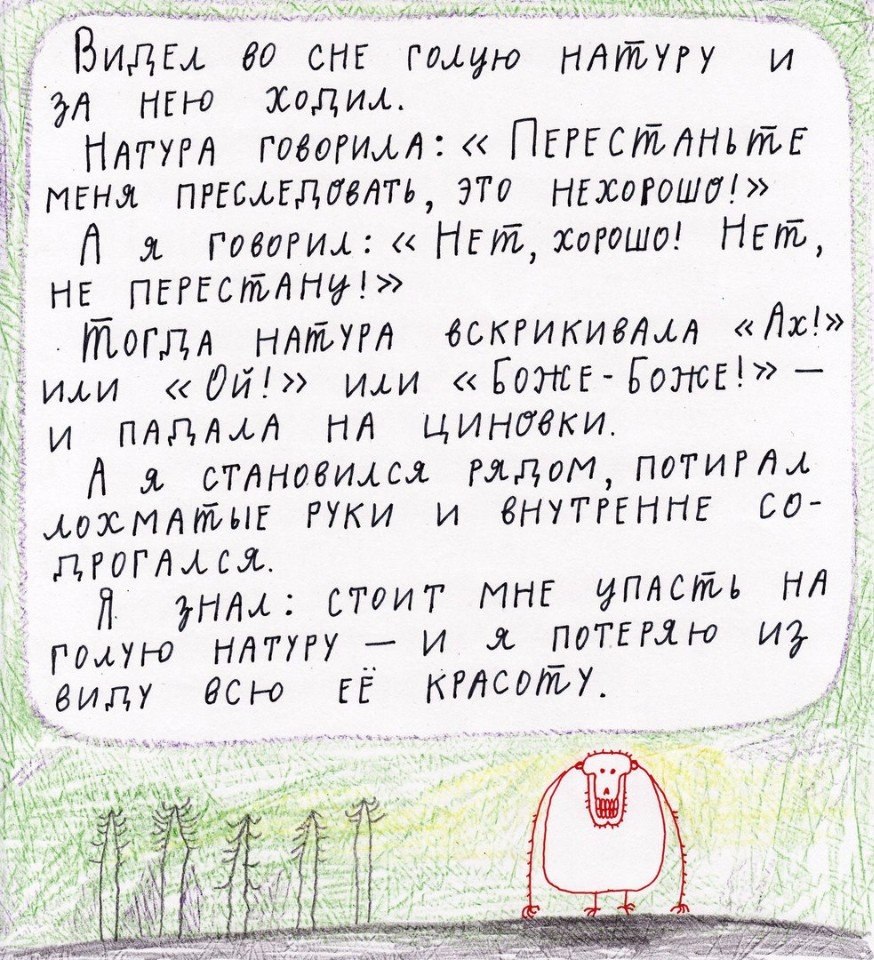 Видел во сне голую натуру и
за нею ходил.
Натура говорила: «Перестаньте
меня преследовать, это нехорошо!»
А я говорил: «Нет, хорошо! Нет,
не перестану!»
Тогда натура вскрикивала «Ах!»
или «Ой!» или «Боже-Боже!» —
и падала на циновки.
А я становился рядом, потирал
лохматые руки и внутренне со-
дрогался.
Я знал: стоит мне упасть на
голую натуру — и я потеряю из
виду всю её красоту.